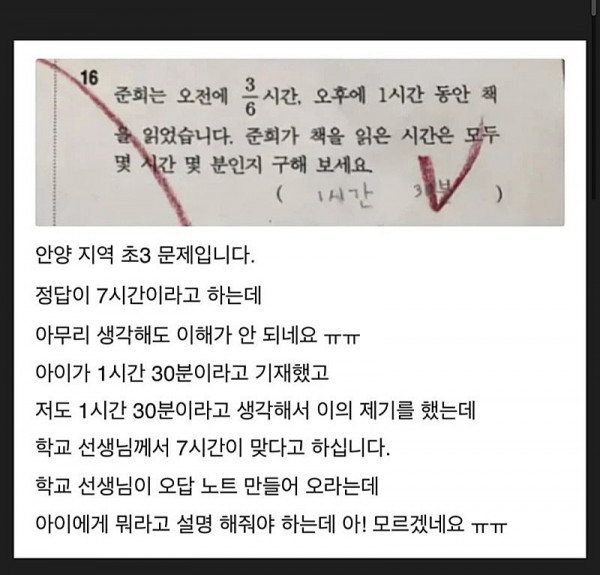 16
준희는 오전에 3/6시간, 오후에 1시간 동안 책
을 읽었습니다. 준희가 책을 읽은 시간은 모두
몇 시간 몇 분인지 구해 보세요.
( 1시간 30분 )
안양 지역 초3 문제입니다.
정답이 7시간이라고 하는데
아무리 생각해도 이해가 안 되네요 ㅠㅠ
아이가 1시간 30분이라고 기재했고
저도 1시간 30분이라고 생각해서 이의 제기를 했는데
학교 선생님께서 7시간이 맞다고 하십니다.
학교 선생님이 오답 노트 만들어 오라는데
아이에게 뭐라고 설명 해줘야 하는데 아! 모르겠네요 ㅠㅠ